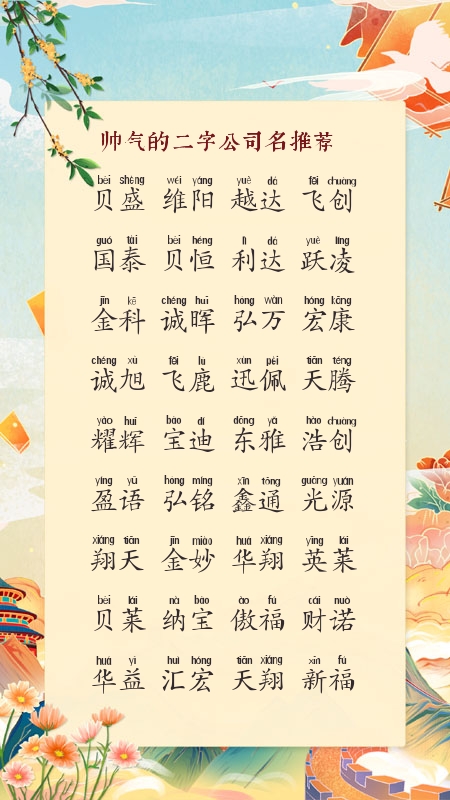 帅气的二字公司名推荐
bèi shèng wéi yáng yuè dá fēi chuàng
贝盛 维阳 越达 飞创
guó tài bèi héng lì dá yuè líng
国泰 贝恒 利达 跃凌
jīn kē chéng huī hóng wàn hóng kāng
金科 诚晖 弘万 宏康
chéng xù fēi lù xùn pèi tiān téng
诚旭 飞鹿 迅佩 天腾
yào huī bǎo dí dōng yǎ hào chuàng
耀辉 宝迪 东雅 浩创
yíng yǔ hóng míng xīn tōng guāng yuán
盈语 弘铭 鑫通 光源
xiáng tiān jīn miào huá xiáng yīng lái
翔天 金妙 华翔 英莱
bèi lái nà bǎo ào fú cái nuò
贝莱 纳宝 傲福 财诺
huá yì huì hóng tiān xiáng xīn fú
华益 汇宏 天翔 新福